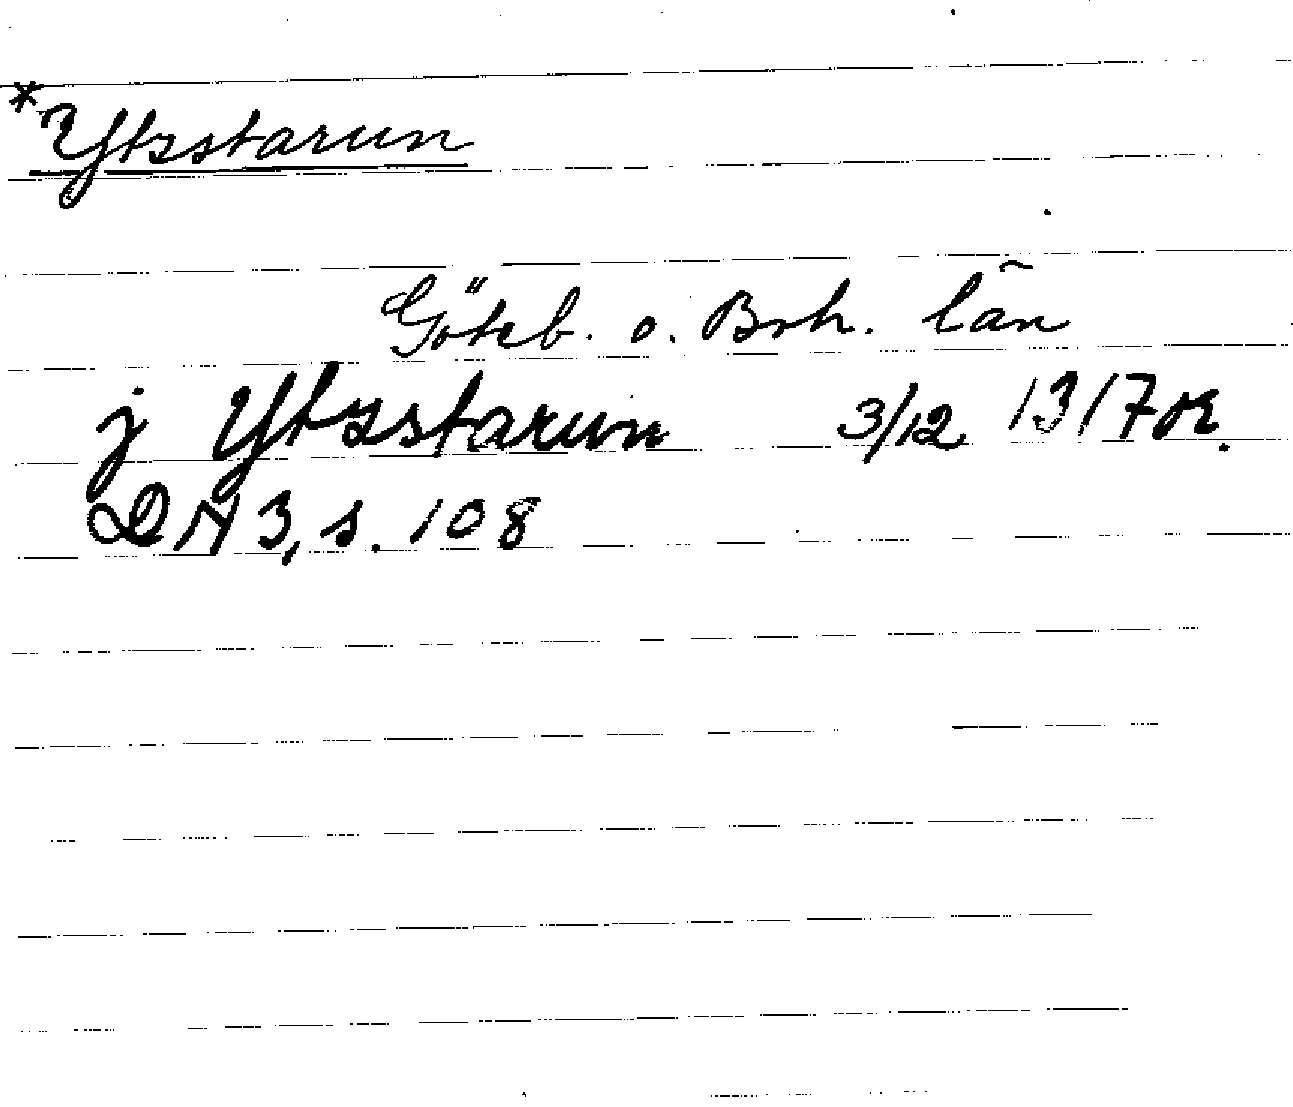 *Ytzstarun
Göteb. o. Boh. län
j Ytzstarun 3/12 1317 or.
DN 3, s. 108